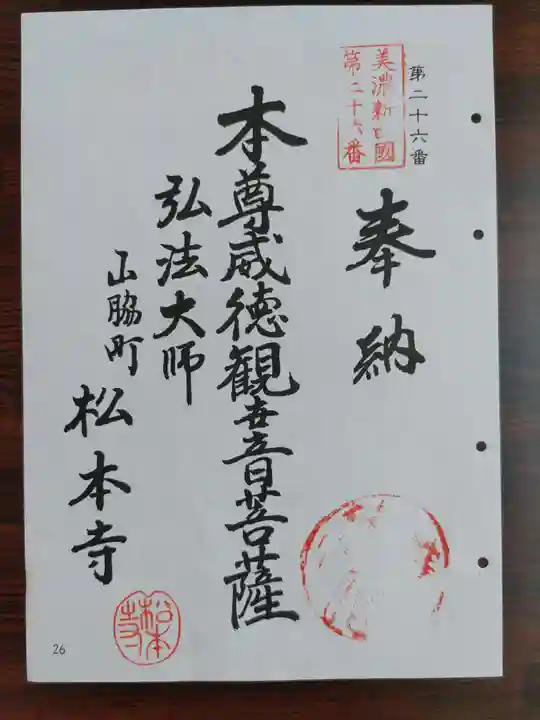 第二十六番
美濃新四國
第二十六番
奉納
本尊威徳観世音菩薩
弘法大師
山脇町
松本寺
松本寺
26